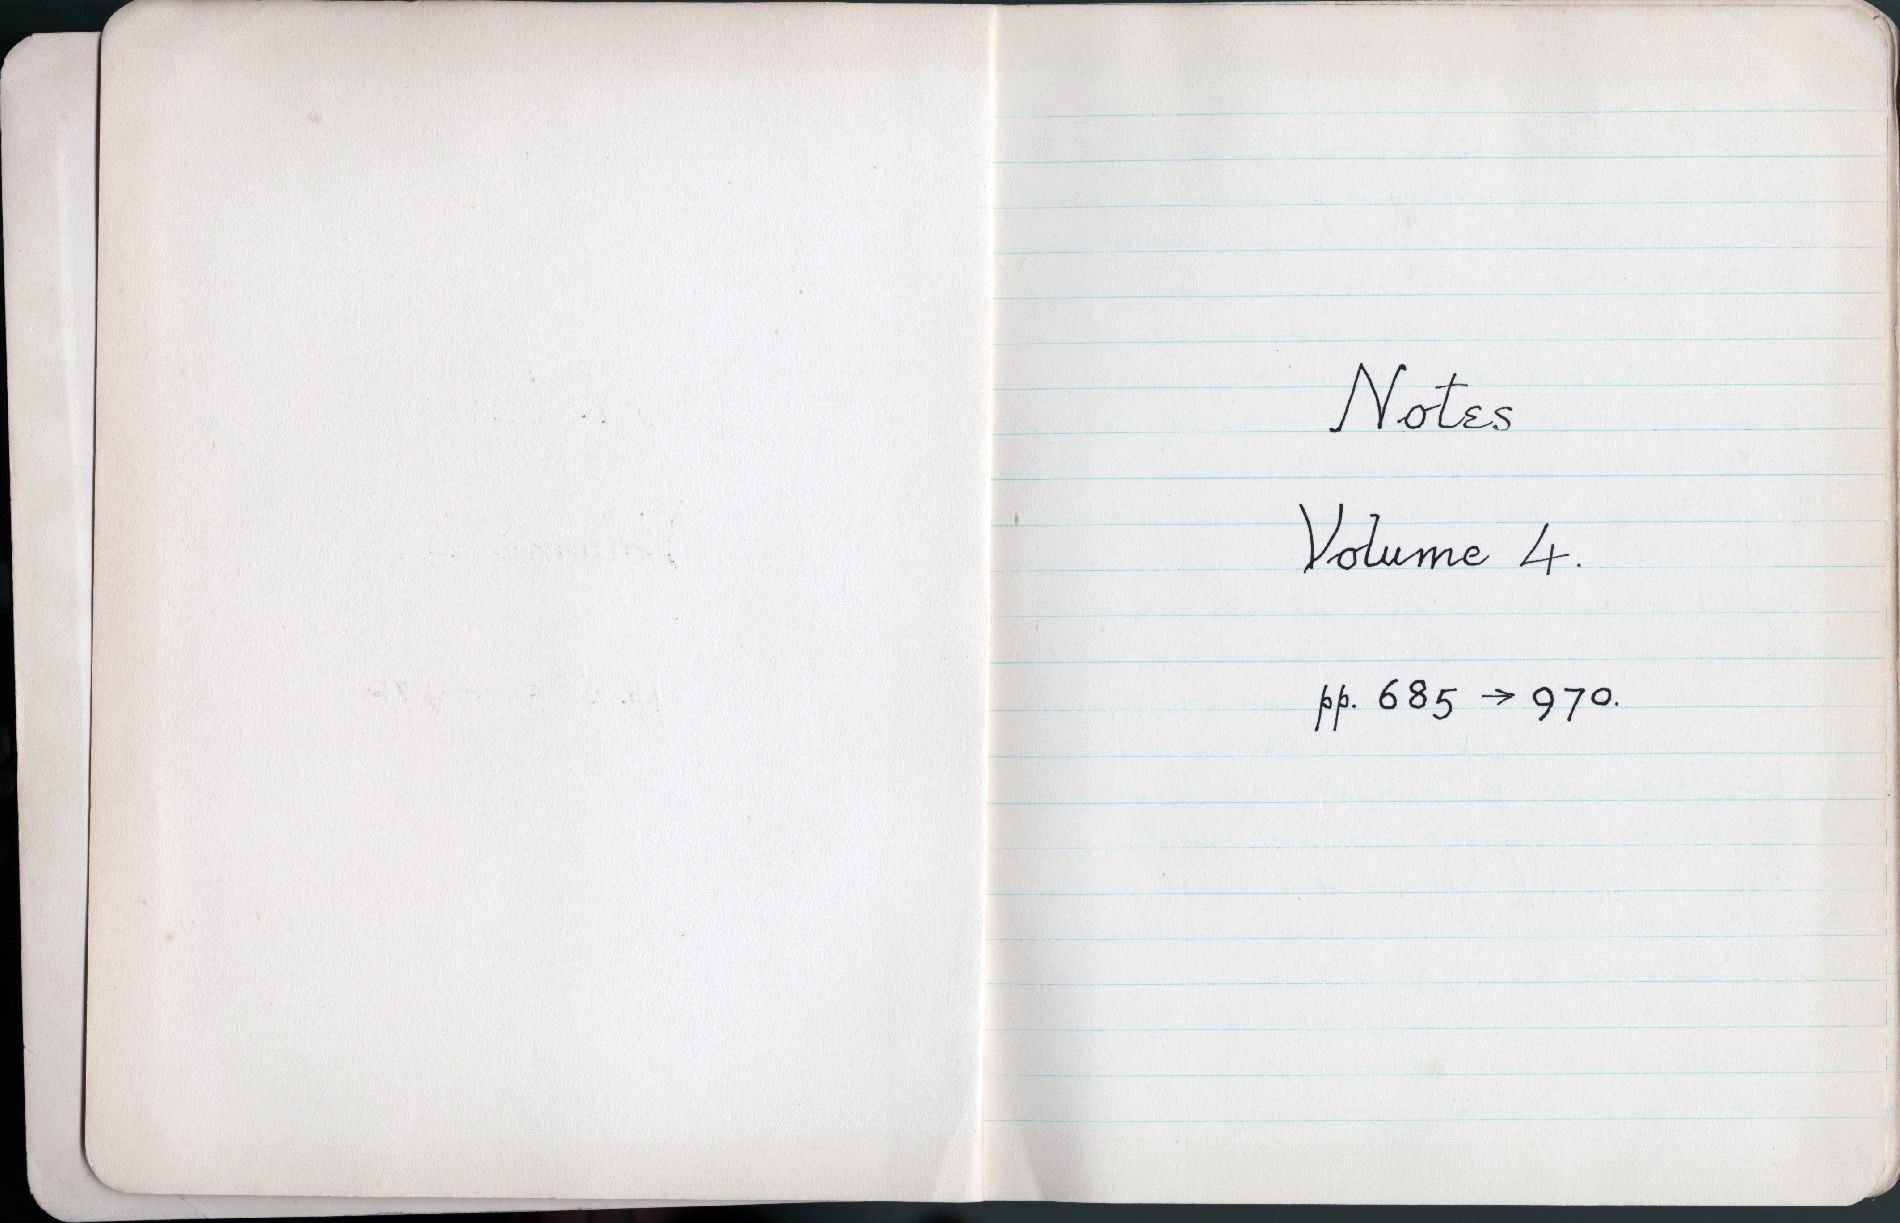 Notes
Volume 4.
pp. 685 → 970.